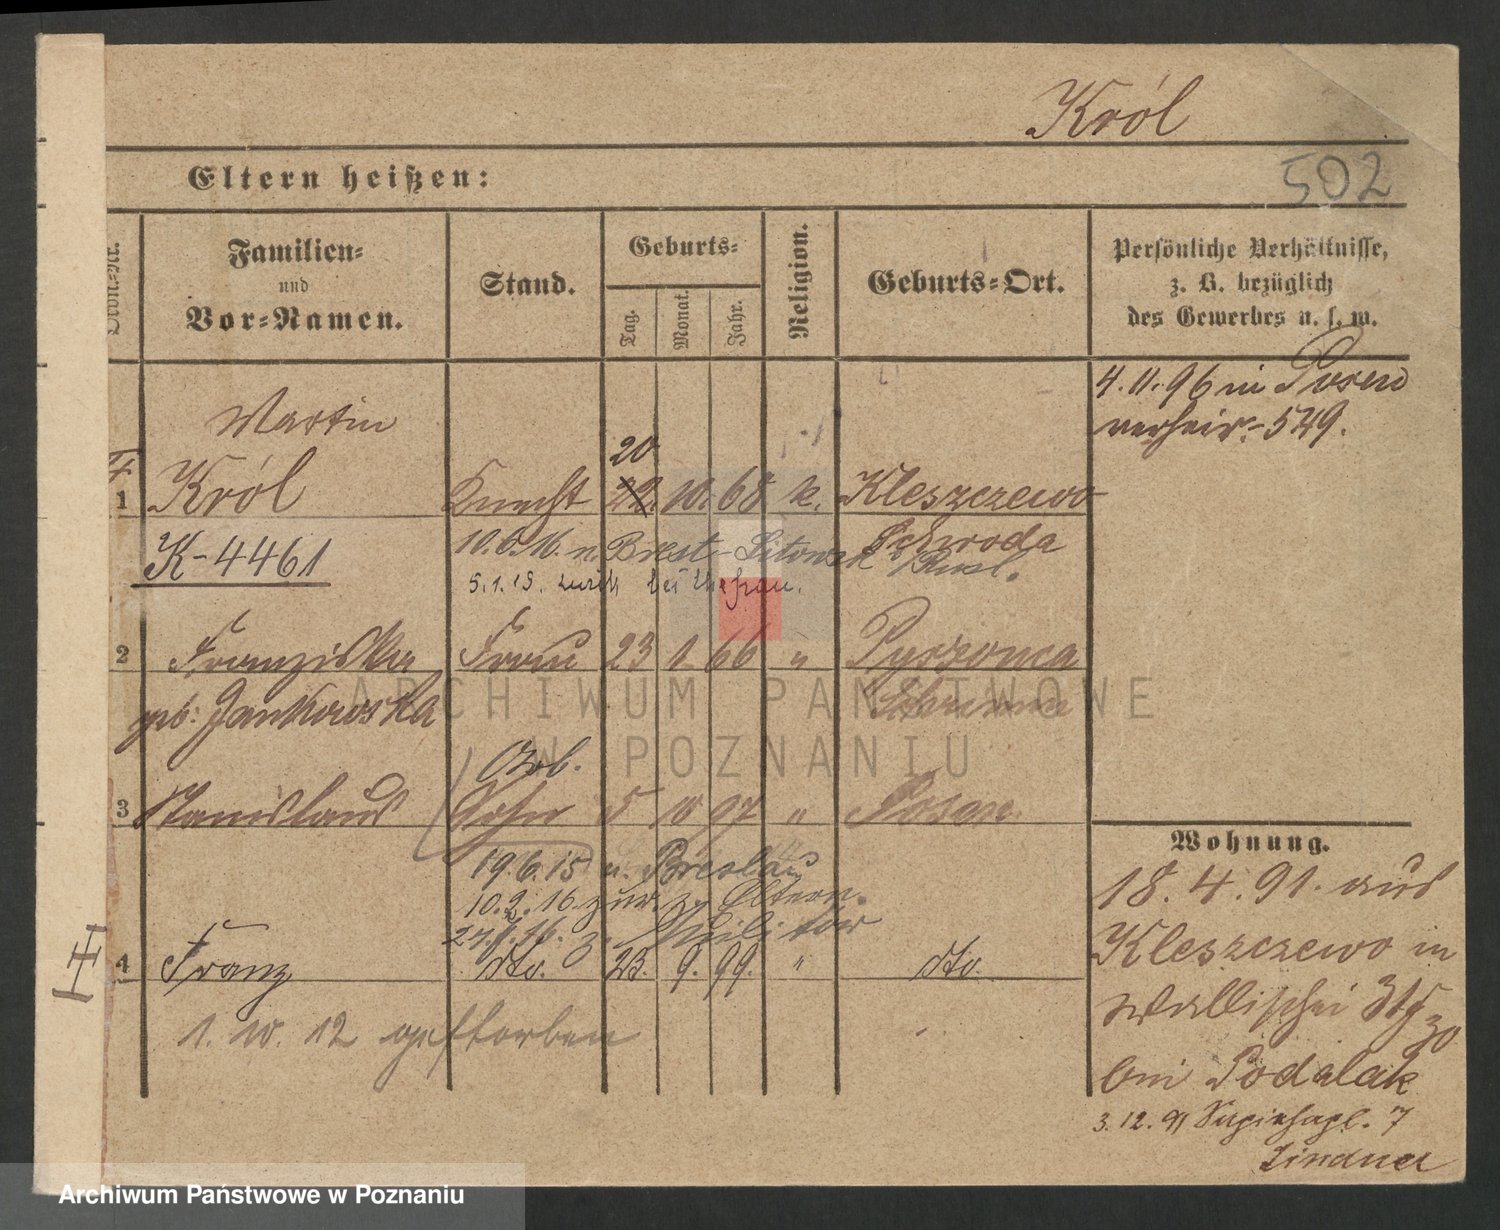 Król
502
Eltern heißen:
Ordn.-Nr.
Familien-
und
Vor-Namen.
Stand.
Geburts-
Tag.
Monat.
Jahr.
Religion.
Geburts-Ort.
Persönliche Verhältnisse,
z. B. bezüglich
des Gewerbes u. s. w.
4. 11. 96 in Posen
verheir. 549.
Martin
20
1 Król Knecht 22. 10. 68 k. Kleszczewo
Schroda
K-4461
10.6.16. n. Brest-Litowsk /Russl.
5.1.19. zurück bei Ehefrau.
2 Franziska Frau 23 1 66 "
geb: Jankowska
Arb.
3 Stanislaus Sohn 5 10 97 " Posen
19.6.15 n. Breslau
10.2.16 zur. z. Eltern.
z. Militär
4 Franz dto. 23. 9. 99. " dto.
1. 10. 12 gestorben
Wohnung.
18. 4. 91. aus
Kleszczewo in
Wallischei
bei Podalak
3. 12. 91 7
Lindner
ARCHIWUM PAŃSTWOWE
W POZNANIU
Archiwum Państwowe w Poznaniu